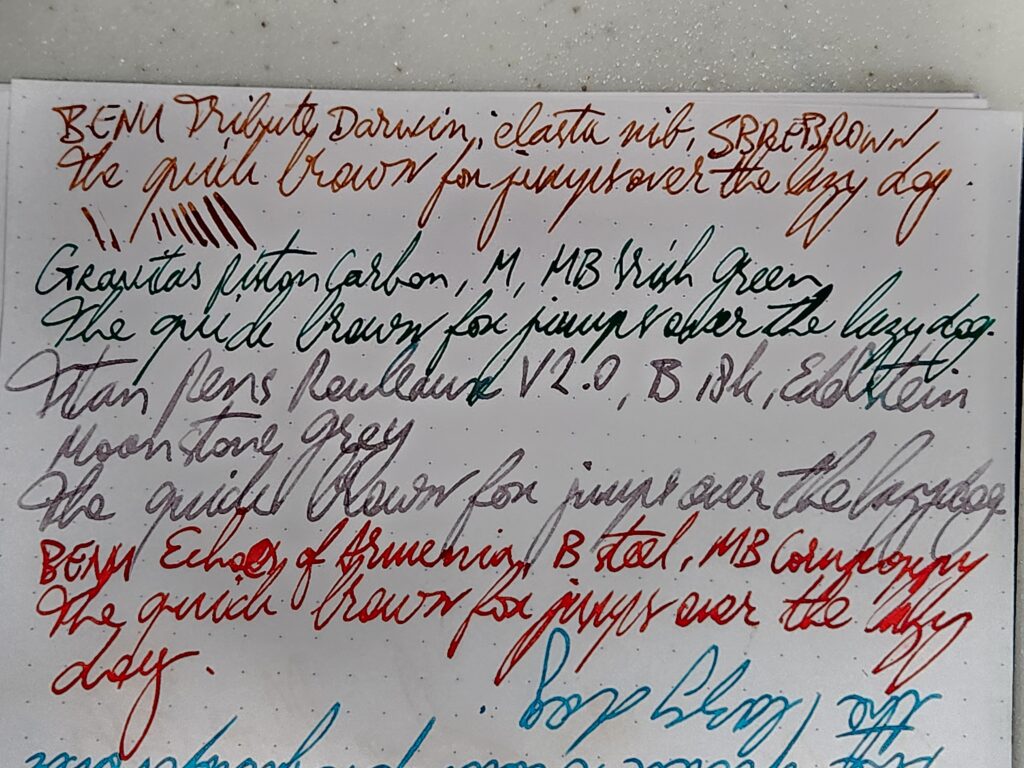 BENU Tribute Darwin, elasta nib, SBREBROWN
The quick brown fox jumps over the lazy dog.
Gravitas Piston Carbon, M, MB Irish Green
The quick brown fox jumps over the lazy dog.
Titan Pens Rouleaux V2.0, B 18k, Edelstein
Moonstone Grey
The quick brown fox jumps over the lazy dog
BENU Echoes of Armenia, B steel, MB
The quick brown fox jumps over the lazy
dog.
the lazy dog.